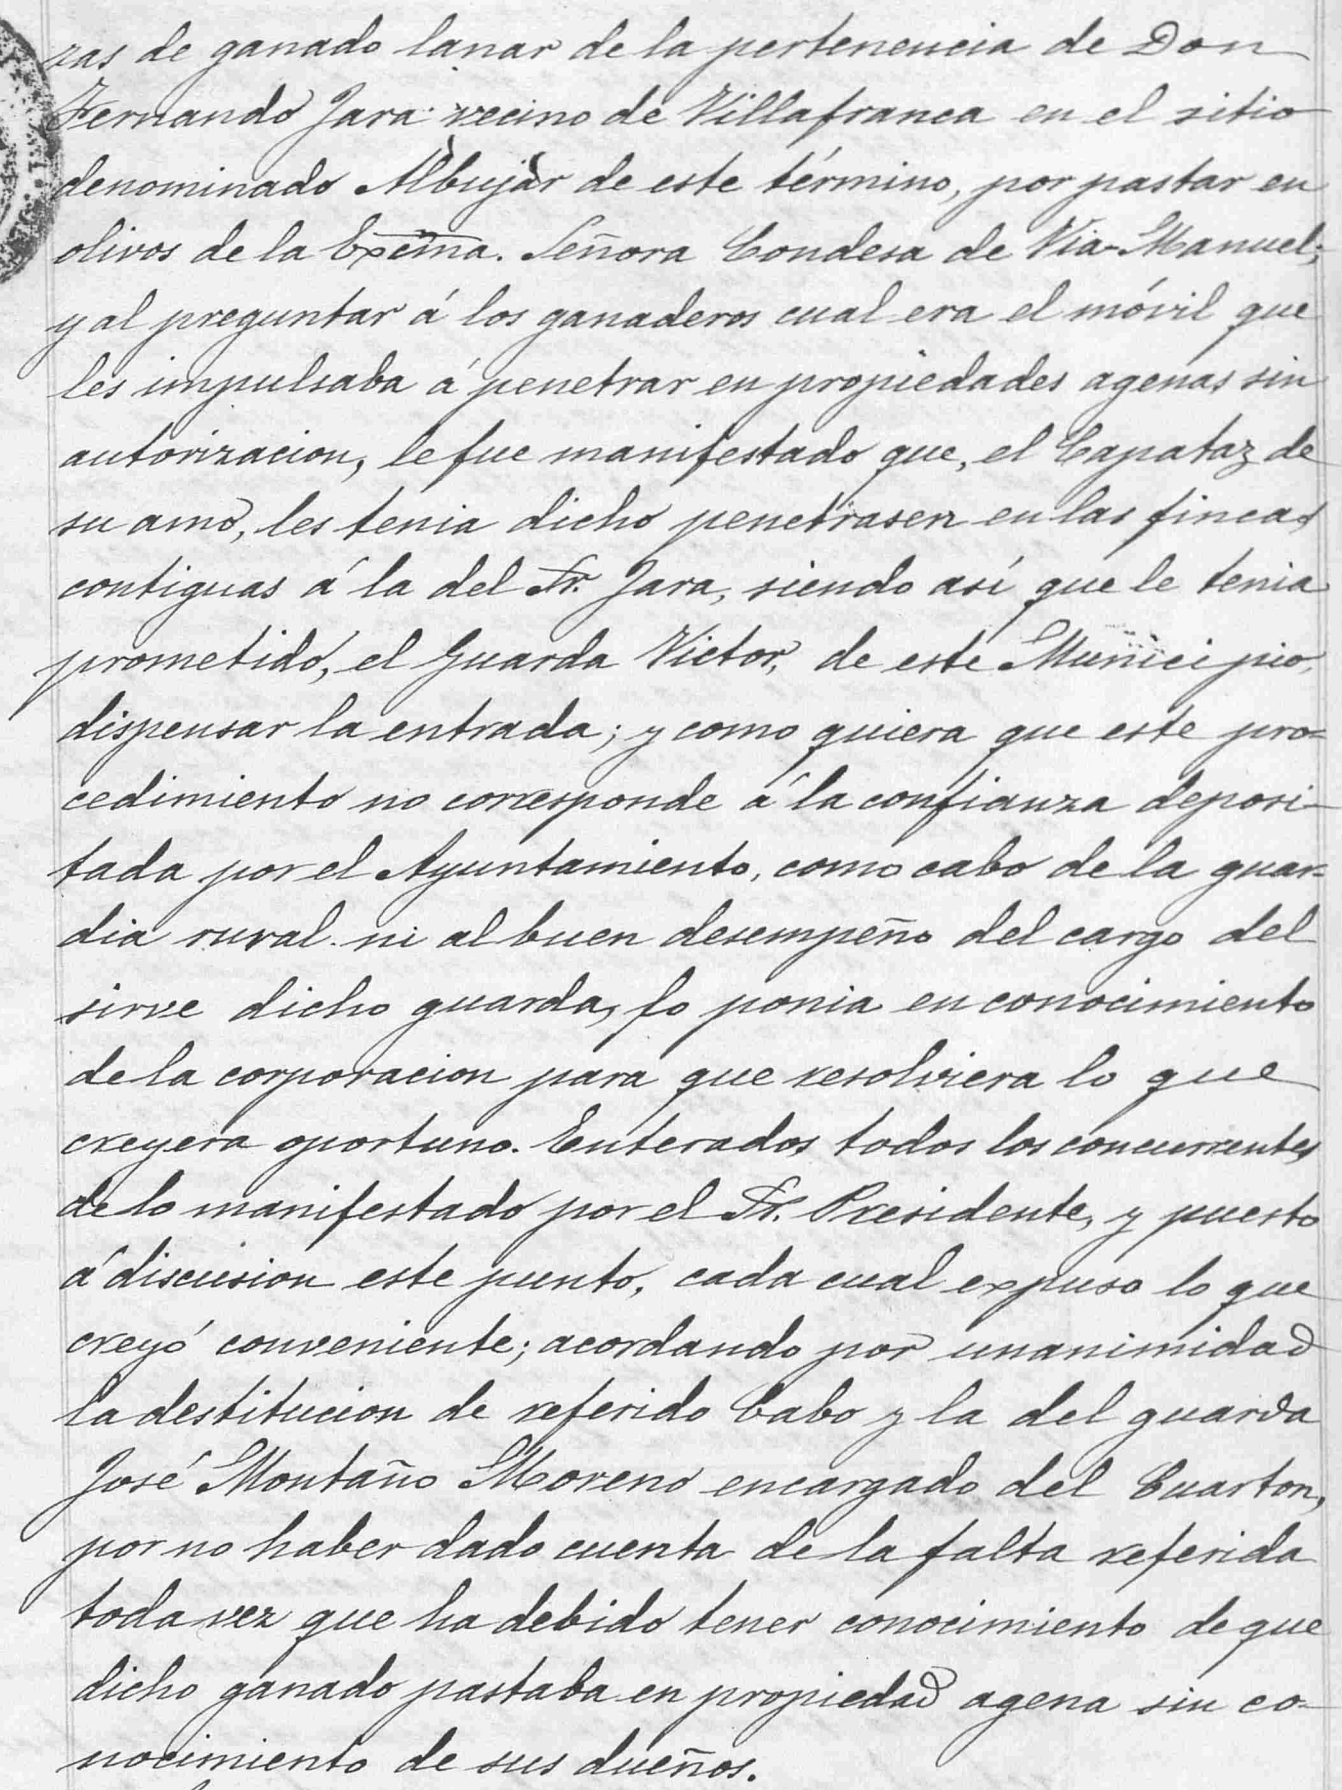 zas de ganado lanar de la pertenencia de Don
Fernando Jara vecino de Villafranca en el sitio
denominado Albujar de este término, por pastar en
olivos de la Excma. Señora Condesa de Via-Manuel;
y al preguntar á los ganaderos cual era el móvil que
les impulsaba á penetrar en propiedades agenas sin
autorizacion, le fue manifestado que, el Capataz de
su amo, les tenia dicho penetrasen en las fincas
contiguas á la del Sr. Jara, siendo así que le tenia
prometido, el Guarda Victor, de este Municipio,
dispensar la entrada; y como quiera que este pro-
cedimiento no corresponde á la confianza deposi-
tada por el Ayuntamiento, como cabo de la guar-
dia rural ni al buen desempeño del cargo del
sirve dicho guarda, lo ponia en conocimiento
de la corporacion para que resolviera lo que
creyera oportuno. Enterados todos los concurrentes
de lo manifestado por el Sr. Presidente, y puesto
á discusion este punto, cada cual expuso lo que
creyó conveniente; acordando por unanimidad
la destitucion de referido Cabo y la del guarda
José Montaño Moreno encargado del Cuarton,
por no haber dado cuenta de la falta referida
toda vez que ha debido tener conocimiento de que
dicho ganado pastaba en propiedad agena sin co-
nocimiento de sus dueños.